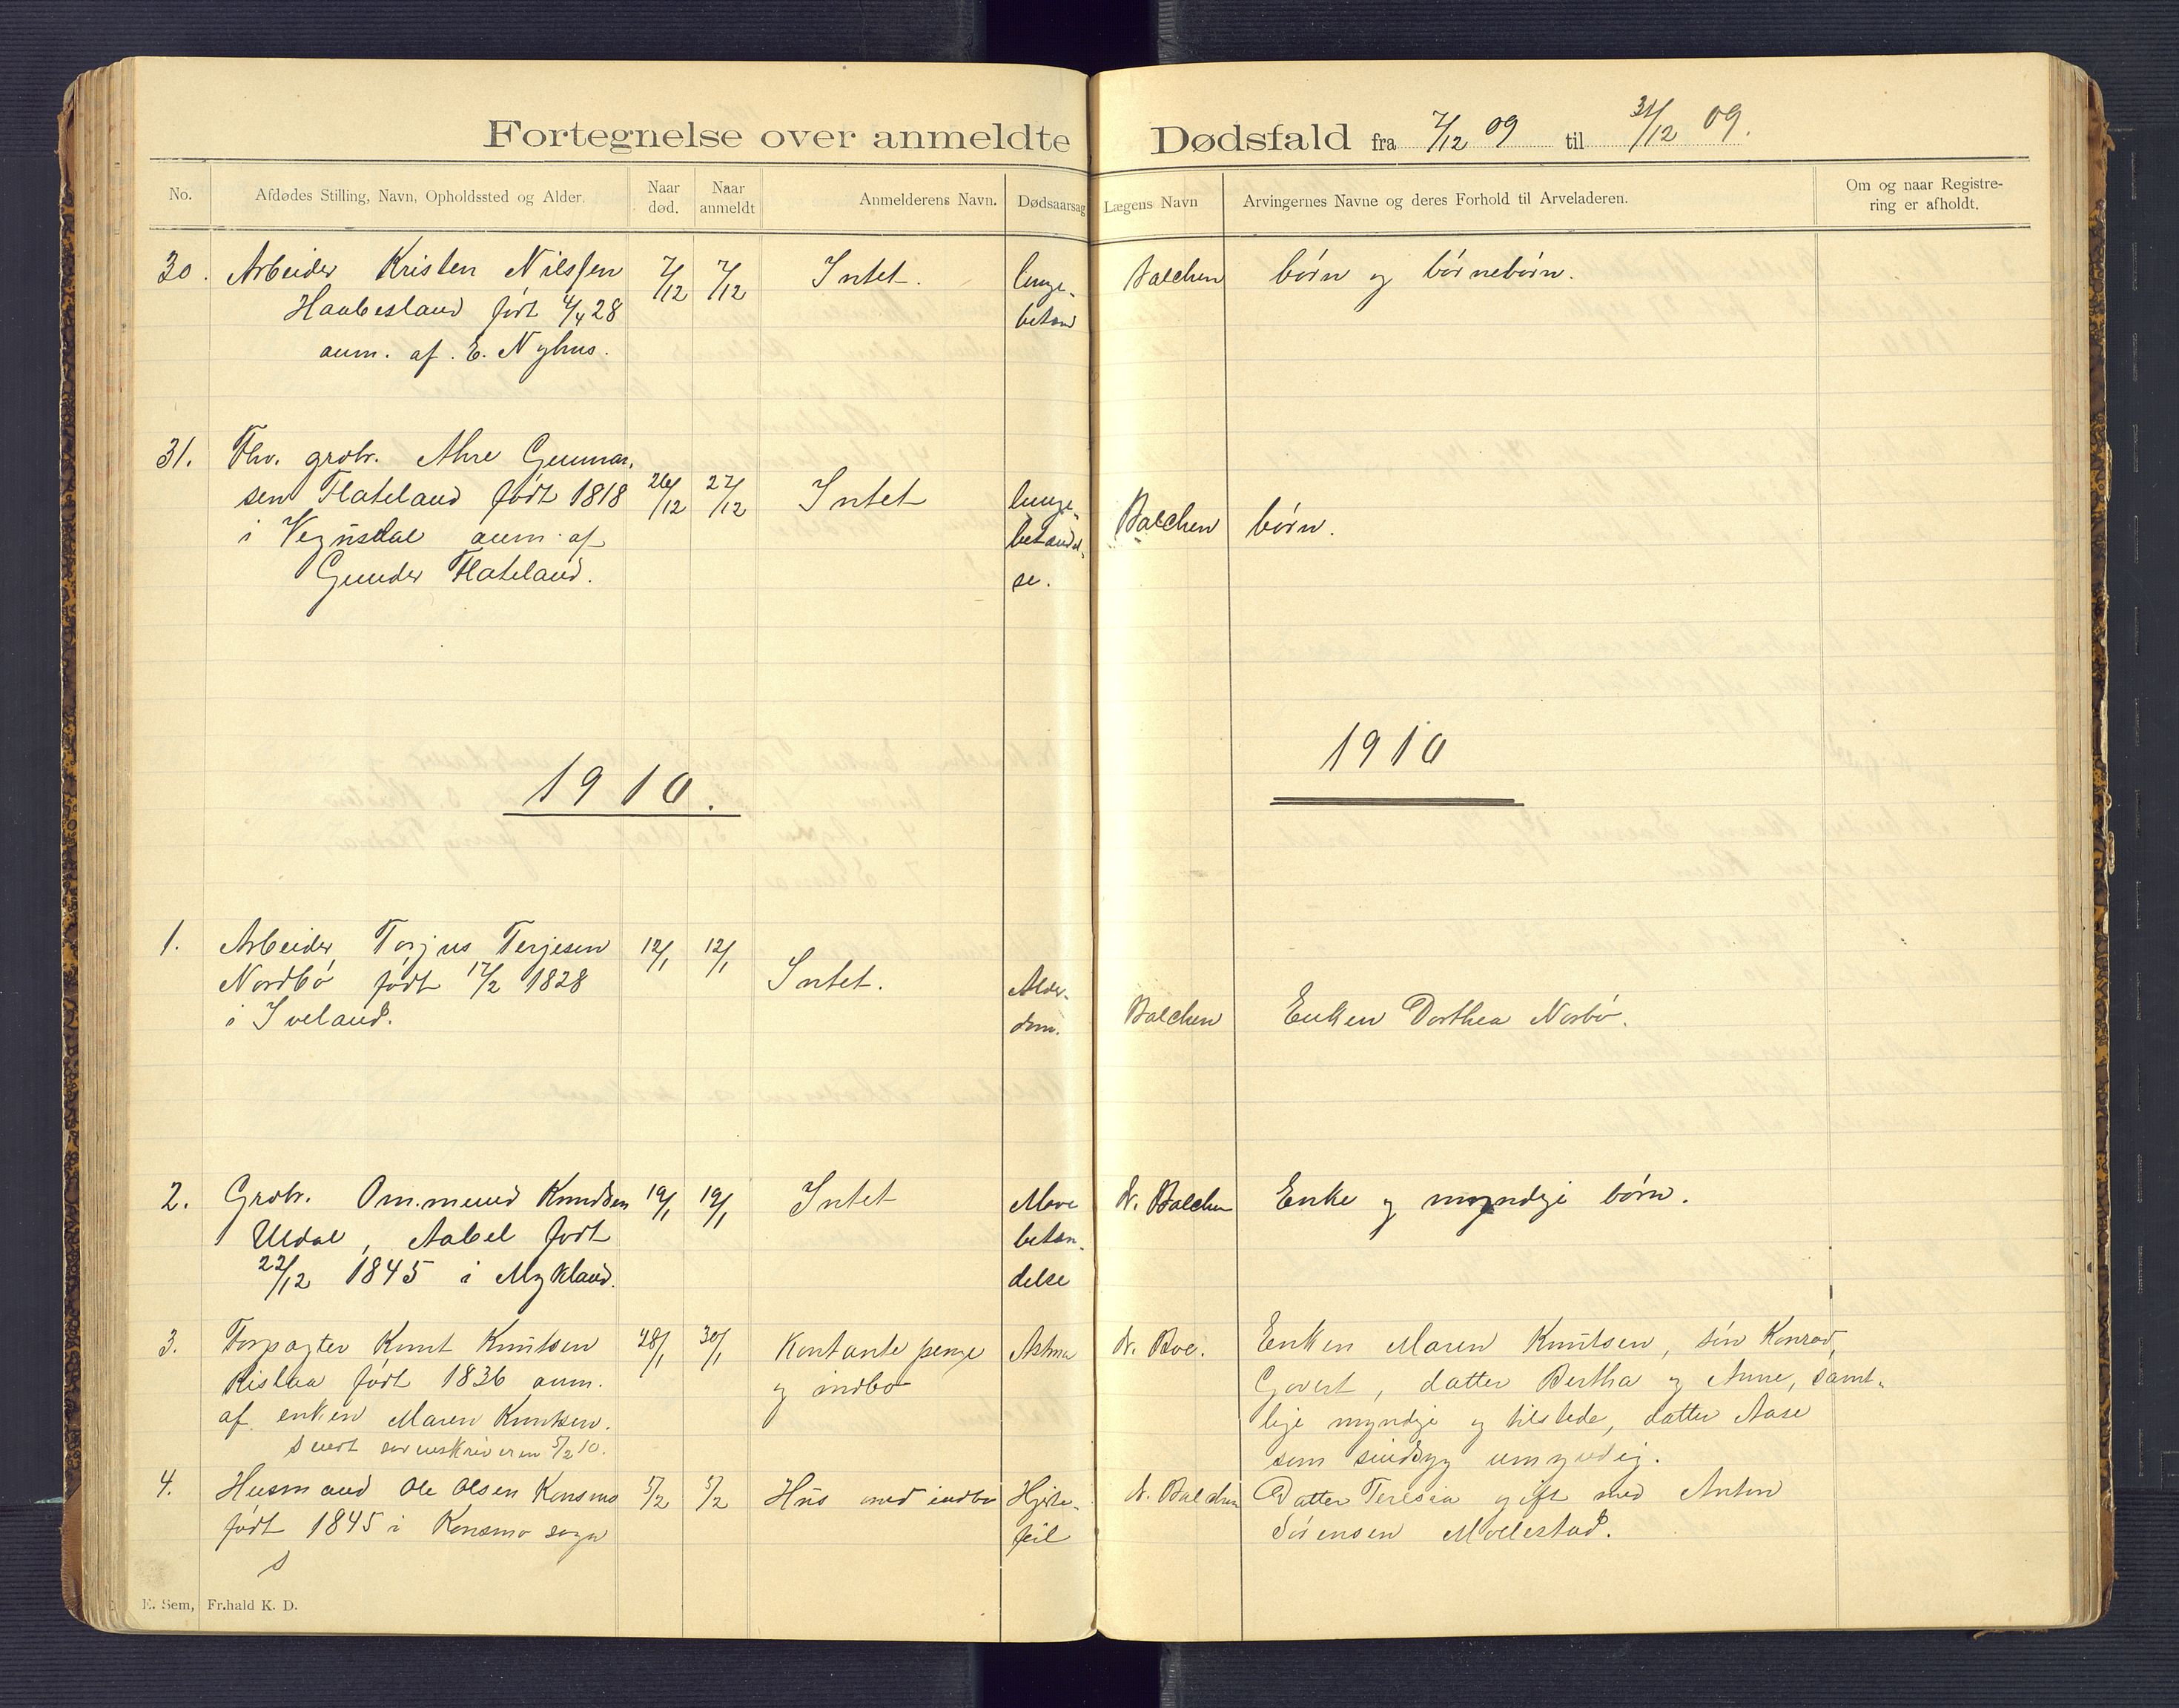 Fortegnelse over anmeldte Dødsfald fra 7/12 09 til 31/12 09.
No. Afdødes Stilling, Navn, Opholdssted og Alder. Naar død. Naar anmeldt Anmelderens Navn. Dødsaarsag Lægens Navn Arvingernes Navne og deres Forhold til Arveladeren. Om og naar Registre-
ring er afholdt.
30. Arbeider Kristen Nilssen 7/12 7/12 Intet. lunge- Balchen børn og børnebørn.
Haabesland født 4/4 28 betænd
anm. af. E. Nyhus.
31. Fhv. grdbr. Gunnar-
sen Flateland født 1818 26/12 27/12 Intet lunge- Balchen børn.
i Vegusdal anm. af betændel-
Gunder Flateland. se.
1910. 1910
1. Arbeider Torjus Terjesen 12/1 12/1
Nordbø født 17/2 1828 Intet. Alder-
i Iveland. dom. Balchen Enken Dorthea Norbø.
2. Grdbr. Ommund Knudsen 19/1 19/1 Intet Mave dr. Balchen Enke og myndige børn.
Uldal, Aabel født betæn-
22/12 1845 i Mykland. delse
3. Forpagter Knut Knutsen 28/1 30/1 Kontante penge Astma dr. Boe. Enken Maren Knutsen, søn Konrad,
Rislaa født 1836 anm. og indbo Govert, datter Bertha og Anne, samt-
af enken Maren Knutsen. lige myndige og tilstede, datter Aase
Sendt sorenskriveren 5/2 10. som sindsyg umyndig.
4. Husmand Ole Olsen Konsmo 5/2 5/2 Hus med indbo Hjerte- dr. Balchen Datter Teresia gift med Anton
født 1845 i Konsmo sogn feil Sørensen Mollestad.
S
E. Sem, Fr.hald K. D.